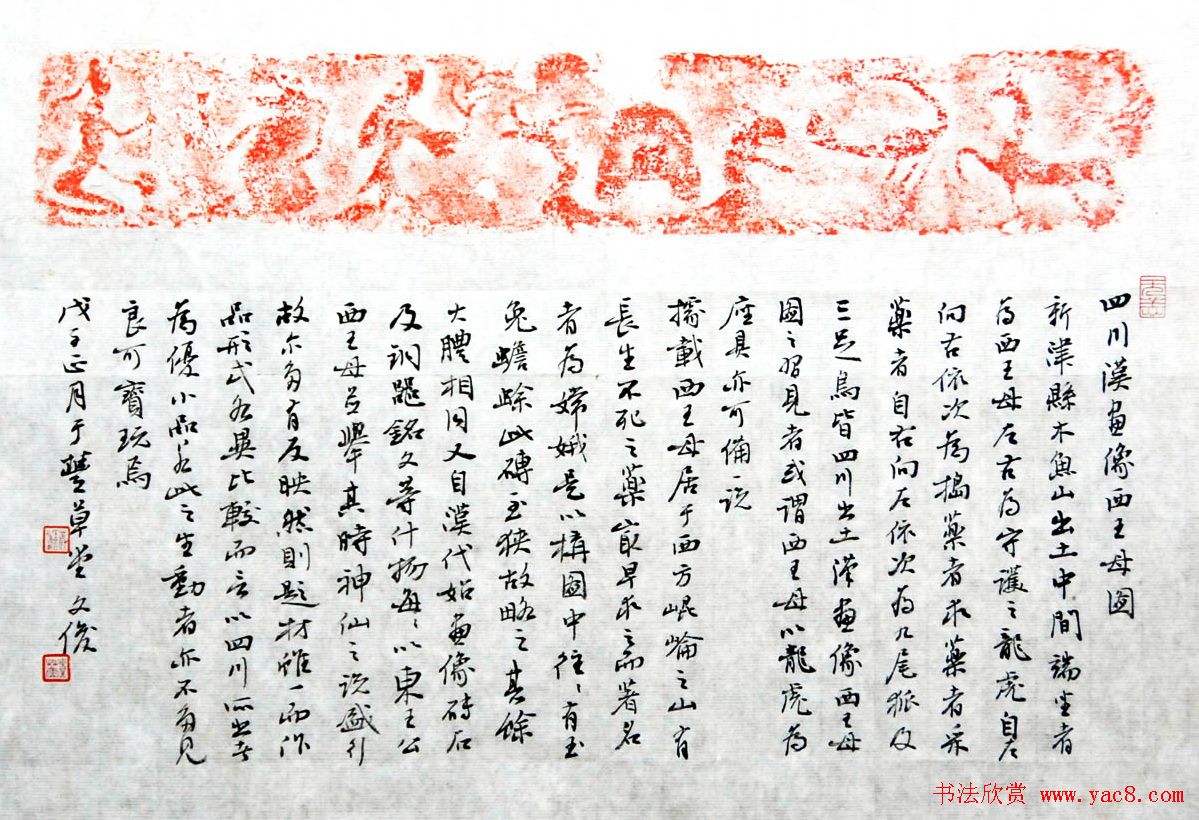 四川漢畫像西王母圖
新津縣木魚山出土中間端坐者
為西王母左右為守護之龍虎自左
向右依次為搗藥者求藥者采
藥者自右向左依次為九尾狐及
三足烏皆四川出土漢畫像西王母
圖之習見者或謂西王母以龍虎為
座具亦可備一說
據載西王母居于西方崐崘之山有
長生不死之藥最早求之而著名
者為嫦娥是以構圖中往〻有玉
兔蟾蜍此磚至狹故略之其餘
大體相同又自漢代始畫像磚石
及銅器銘文等什物每〻以東王公
西王母並舉其時神仙之說盛行
故亦多有反映然則題材雖一而作
品形式各異比較而言以四川所出者
為優小品若此之生動者亦不多見
良可寶玩焉
戊子正月于豐草堂文俊
书法欣赏 www.yac8.com